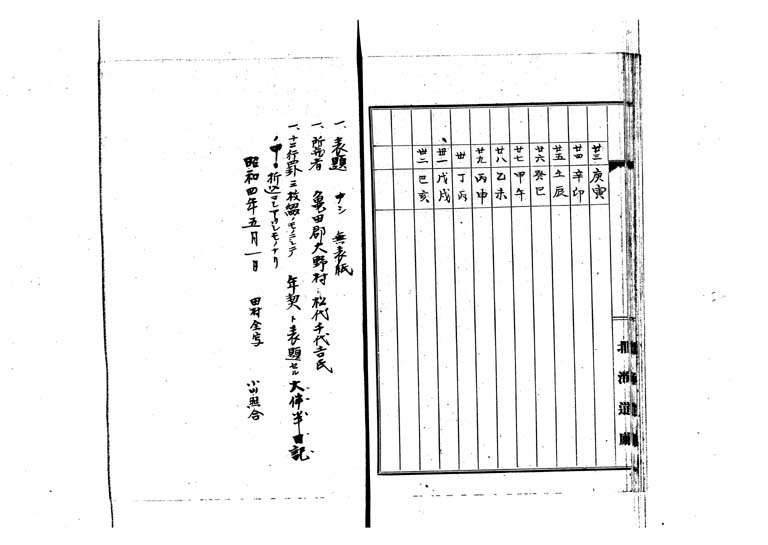 廿三 庚寅
廿四 辛卯
廿五 壬辰
廿六 癸巳
廿七 甲午
廿八 乙未
廿九 丙申
卅 丁酉
卅一 戊戌
卅二 己亥
一、表題 ナシ 無表紙
一、所蔵者 亀田郡大野村 松代千代吉氏
一、十二行罫三枚綴ノモノニシテ 年契ト表題セル大倅半日記
ノ中ニ折込マレアリシモノナリ
昭和四年五月一日 田村全写 小川照合
北海道廳